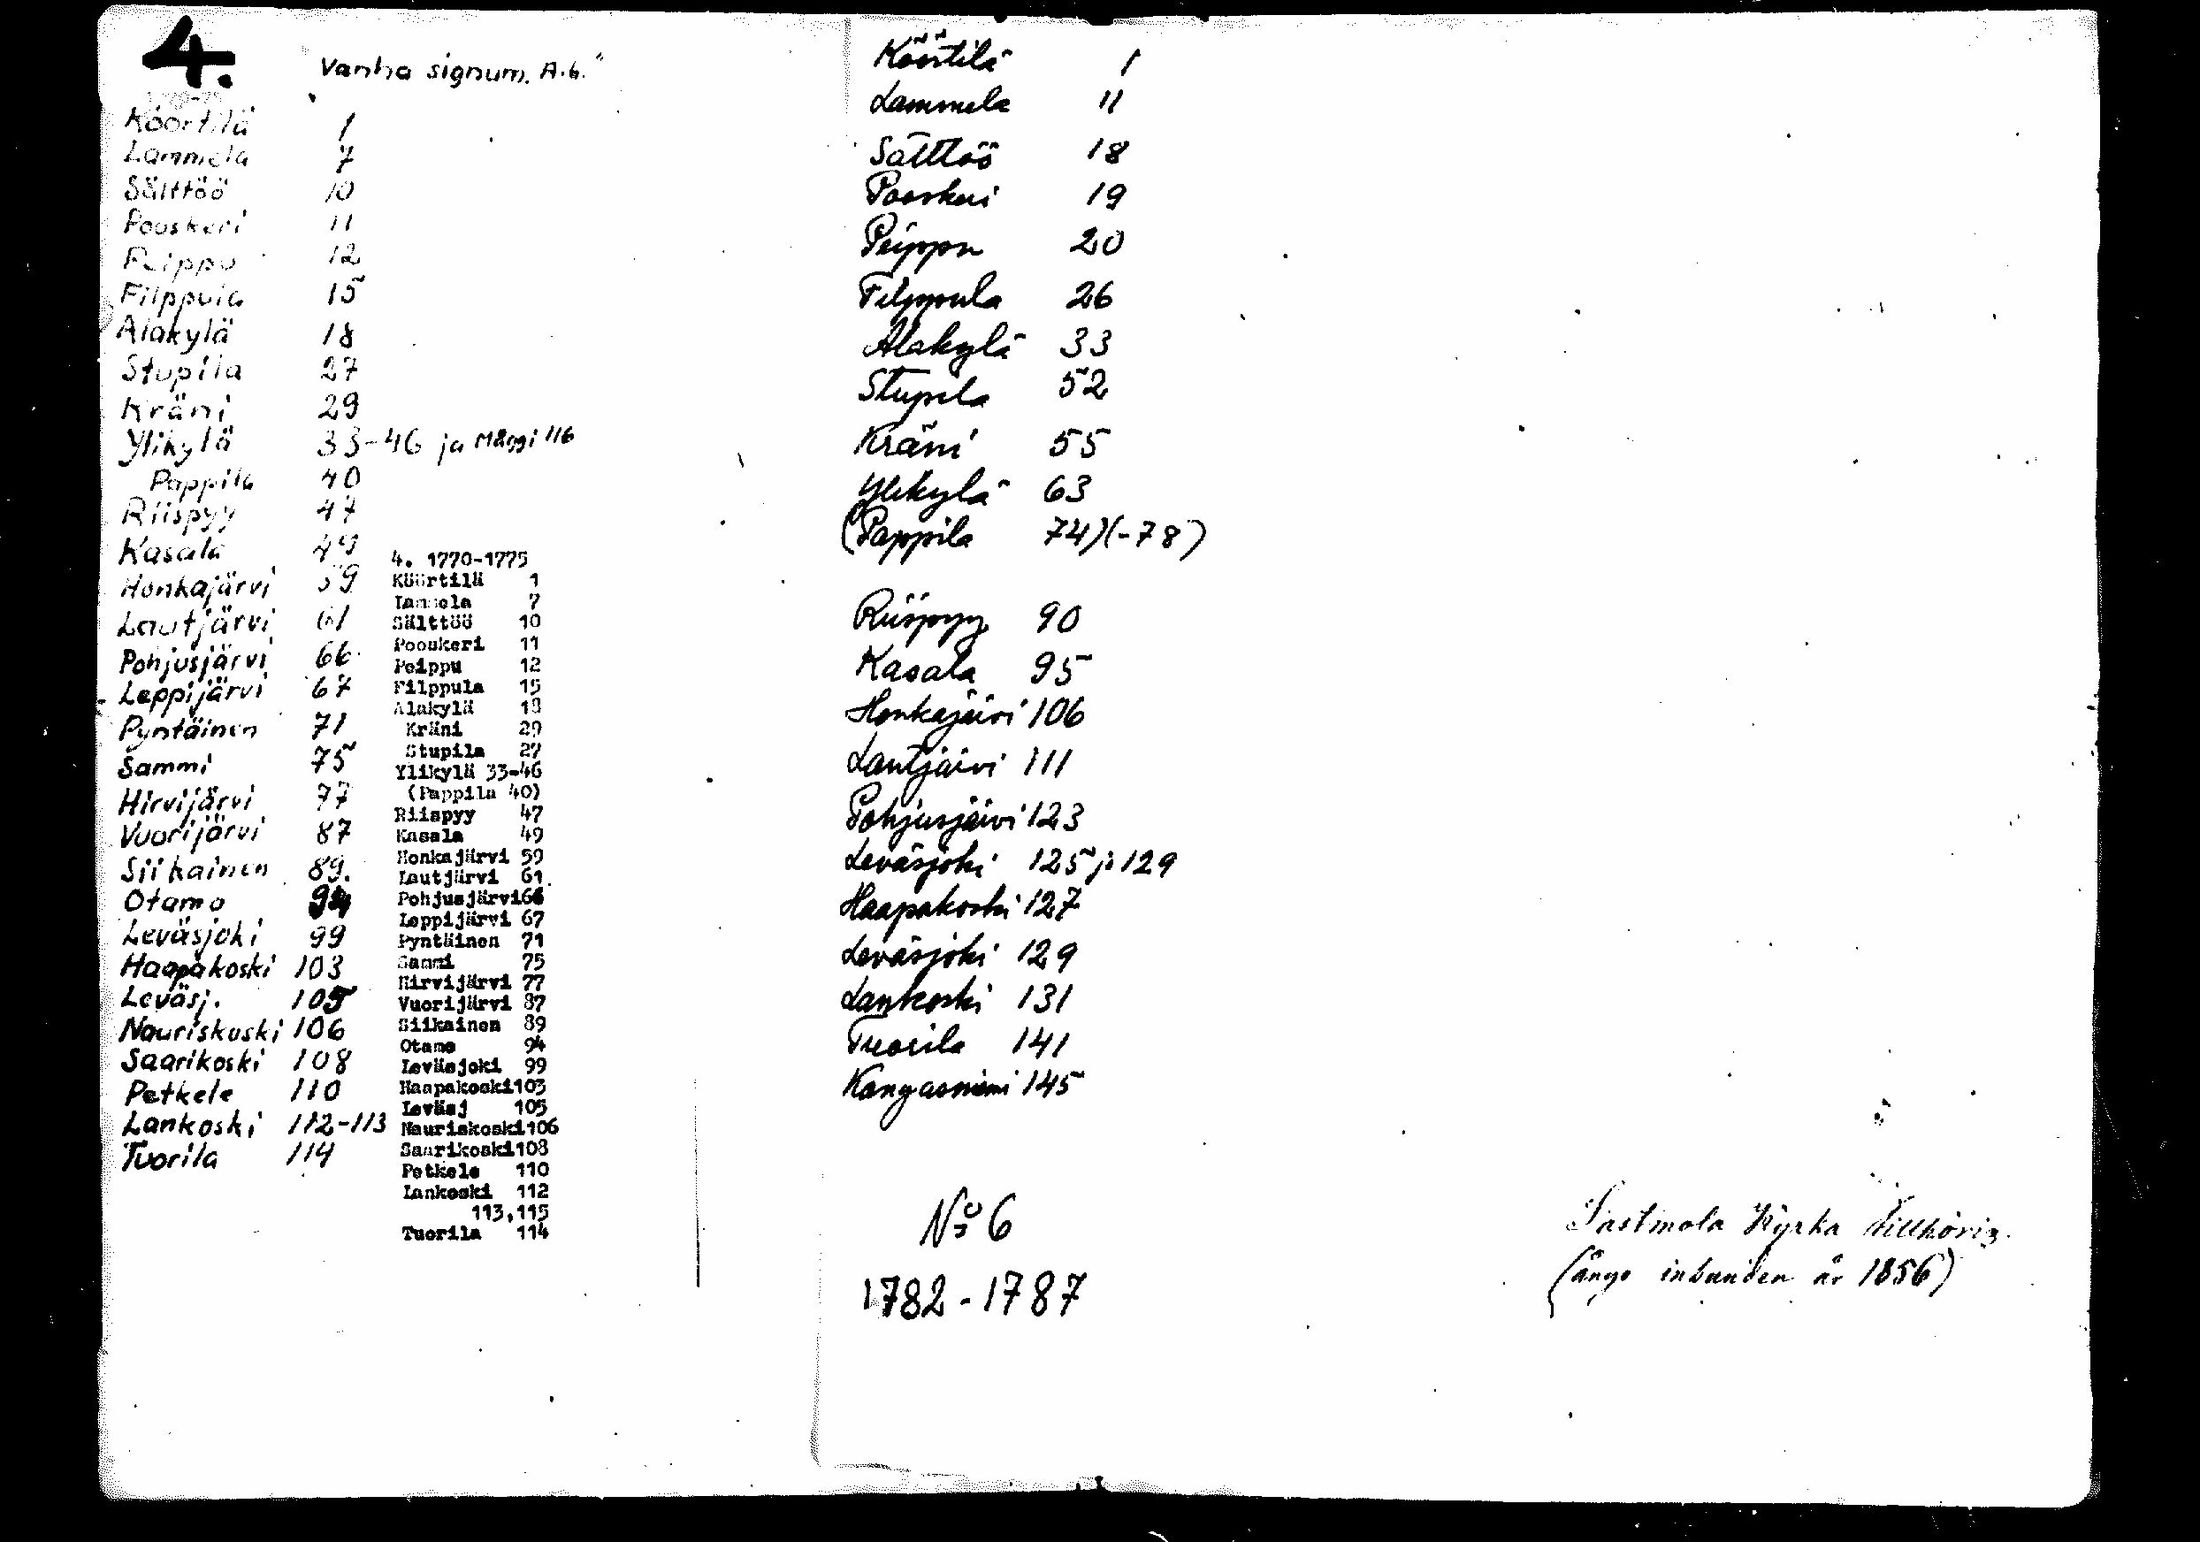 4.
Vanha signum. A.6."
1770-75
Köörtilä 1
Lammela 7
Sälttöö 10
Pooskeri 11
Peippu 12
Filppula 15
Alakylä 18
Stupila 27
Kräni 29
Ylikylä 33-46 ja Mäggi 116
Pappila 40
Riispyy 47
Kasala 49
Honkajärvi 59
Lautjärvi 61
Pohjusjärvi 66
Leppijärvi 67
Pyntäinen 71
Sammi 75
Hirvijärvi 77
Vuorijärvi 87
Siikainen 89.
Otamo 94
Leväsjoki 99
Haapakoski 103
Leväsj. 105
Nauriskoski 106
Saarikoski 108
Petkele 110
Lankoski 112-113
Tuorila 114
4. 1770-1775
Köörtilä 1
Lammela 7
Sälttöö 10
Pooskeri 11
Peippu 12
Filppula 15
Alakylä 18
Kräni 29
Stupila 27
Ylikylä 33-46
(Pappila 40)
Riispyy 47
Kasala 49
Honkajärvi 59
Lautjärvi 61.
Pohjusjärvi66
Leppijärvi 67
Pyntäinen 71
Sammi 75
Hirvijärvi 77
Vuorijärvi 87
Siikainen 89
Otamo 94
Leväsjoki 99
Haapakoski103
Leväsj 105
Nauriskoski106
Saarikoski108
Petkele 110
Lankoski 112
113,115
Tuorila 114
Köörtilä 1
Lammela 11
Sälttöö 18
Pooskeri 19
Peippu 20
Filppula 26
Alakylä 33
Stupila 52
Kräni 55
Ylikylä 63
(Pappila 74)(-78)
Riispyy 90
Kasala 95
Honkajärvi 106
Lautjärvi 111
Pohjusjärvi 123
Leväsjoki 125 ja 129
Haapakoski 127
Leväsjoki 129
Lankoski 131
Tuorila 141
Kangasniemi 145
No 6
1782-1787
Sastmola Kyrka tillhörig.
(ånyo inbunden år 1856)